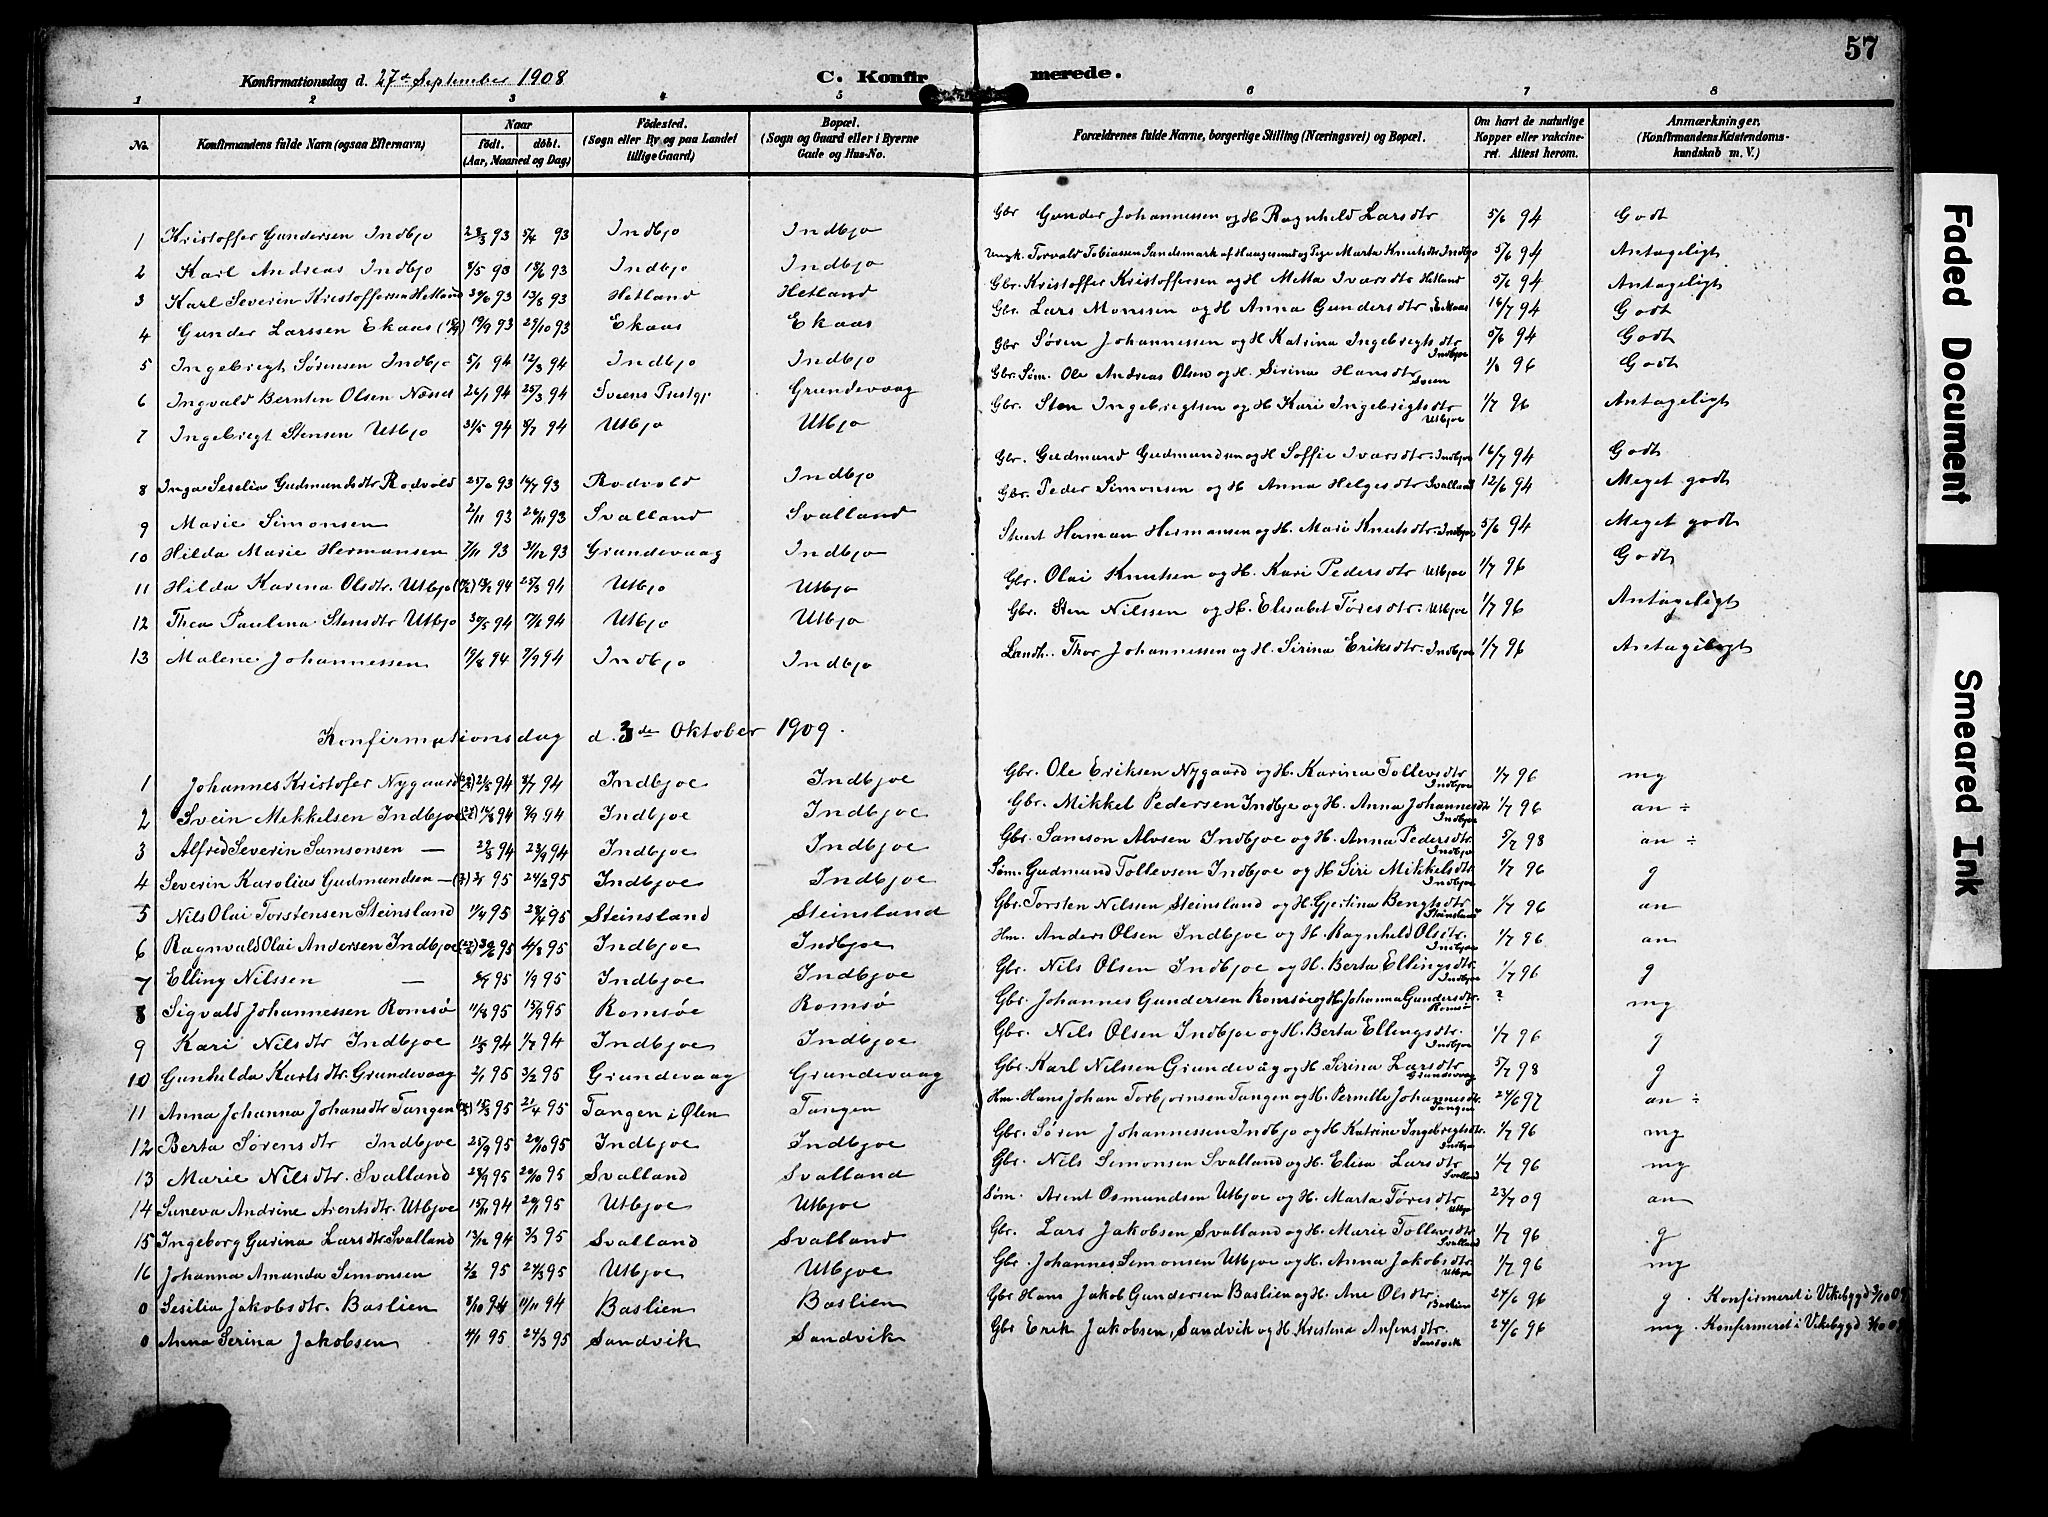 57
Konfirmationsdag d. 27de September 1908 C. Konfirmerede.
1 2 3 4 5 6 7 8
No. Konfirmandens fulde Navn (ogsaa Efternavn) Naar født. døbt. (Aar, Maaned og Dag) Fødested. (Sogn eller By og paa Landet tillige Gaard) Bopæl. (Sogn og Gaard eller i Byerne Gade og Hus-No. Forældrenes fulde Navne, borgerlige Stilling (Næringsvei) og Bopæl. Om havt de naturlige Kopper eller vakcineret. Attest herom. Anmærkninger, (Konfirmandens Kristendomskundskab m. V.)
1 Kristoffer Gundersen Indbjo 93 5/4 93 Indbjo Indbjo Gbr Gunder Johannessen og H Ragnhild Larsdtr 5/6 94 Godt
2 Karl Andreas Indbjo 8/5 93 18/6 93 Indbjo Indbjo Ungk. Torvald Tobiassen Sandsmark af Haugesund og Pige Marta Knutsdtr Indbjo 5/6 94 Antageligt
3 Karl Severin Kristoffersen Hetland 30/6 93 13/8 93 Hetland Hetland Gbr. Kristoffer Kristoffersen og H Metta Iversdtr Hetland 5/6 94 Antageligt
4 Gunder Larssen Ekaas 19/9 93 29/10 93 Ekaas Ekaas Gbr. Lars Monssen og H Anna Gundersdtr Eekaas 16/7 94 Godt
5 Ingebrigt Sørensen Indbjo 5/1 94 12/3 94 Indbjo Indbjo Gbr Søren Johannessen og H Katrina Ingebrigtsdtr Indbjoe 5/6 94 Godt
6 Ingvald Berntin Olsen Næsset 26/1 94 25/3 94 Sveens Prestgj Grundevaag Gbr. Søm. Ole Andreas Olsen og H. Sirina Hansdtr Sveen 1/8 96 Godt
7 Ingebrigt Stensen Utbjo 31/5 94 8/7 94 Utbjo Utbjo Gbr. Sten Ingebrigtsen og H Kari Ingebrigtsdtr Utbjoe 1/7 96 Antageligt
8 Inga Seselia Gudmundsdtr Rodvold 93 16/7 93 Rodvold Indbjo Gbr. Gudmund Gudmundsen og H Soffie Iversdtr. Indbjoe 16/7 94 Godt
9 Marie Simonsen 2/11 93 26/11 93 Svalland Svalland Gbr. Peder Simonsen og H Anna Helgesdtr Svalland 12/6 94 Meget godt
10 Hilda Marie Hermansen 7/11 93 31/12 93 Grundevaag Indbjo Herman Hermansen og H. Mari Knutsdtr. Indbjoe 5/6 94 Meget godt
11 Hilda Karina Olsdtr. Utbjo 94 25/3 94 Utbjo Utbjo Gbr. Olai Knutsen og H. Kari Pedersdtr Utbjoe 1/7 96 Godt
12 Thea Paulina Stensdtr Utbjo 30/5 94 94 Utbjo Utbjo Gbr. Sten Nilssen og H. Elisabet Toresdtr. Utbjoe 1/7 96 Antageligt
13 Malene Johannessen 19/8 94 7/9 94 Indbjo Indbjo Landh. Thor Johannessen og H Sirina Eriksdtr. Indbjoe 1/7 96 Antageligt
Konfirmationsdag d. 3de Oktober 1909.
1 Johannes Kristofer Nygaard 94 8/7 94 Indbjoe Indbjoe Gbr. Ole Eriksen Nygaard og H. Karina Tollevsdtr Indbjoe 1/7 96 mg
2 Svein Mikkelsen Indbjoe 94 9/9 94 Indbjoe Indbjoe Gbr. Mikkel Pedersen Indbjo og H. Anna Johannesdtr Indbjoe 1/7 96 an ÷
3 Alfred Severin Samsonsen — 94 23/9 94 Indbjoe Indbjoe Gbr. Samson Alvsen Indbjoe og H. Anna Pedersdtr. Indbjo 5/7 98 an ÷
4 Severin Karolius Gudmundsen — 95 24/2 95 Indbjoe Indbjoe Søm. Gudmund Tollevsen Indbjoe og H Siri Mikkelsdtr. Indbjoe 1/7 96 g
5 Nils Olai Torstensen Steinsland 1/4 95 28/4 95 Steinsland Steinsland Gbr. Torsten Nilssen Steinsland og H. Gjertina Bengtsdtr Steinsland 1/7 96 an
6 Ragnvald Olai Andersen Indbjoe 30/6 95 4/8 95 Indbjoe Indbjoe Hm. Anders Olsen Indbjoe og H. Ragnhild Olsdtr. Indbjoe 1/7 96 an
7 Elling Nilssen — 95 1/9 95 Indbjoe Indbjoe Gbr. Nils Olsen Indbjoe og H. Berta Ellingsdtr. Indbjoe 1/7 96 g
8 Sigvald Johannessen Romsø 11/8 95 15/9 95 Romsøe Romsø Gbr. Johannes Gundersen Romsøe og H. Johanna Gundersdtr. Romsø ? mg
9 Kari Nilsdtr Indbjoe 94 1/7 94 Indbjoe Indbjoe Gbr. Nils Olsen Indbjoe og H. Berta Ellingsdtr. Indbjoe 1/7 96 g
10 Gunhilda Karlsdtr. Grundevaag 2/1 95 3/2 95 Grundevaag Grundevaag Gbr. Karl Nilssen Grundevåg og H Sirina Larsdtr Grundevaag 5/7 98 g
11 Anna Johanna Johansdtr Tangen 15/3 95 21/4 95 Tangen i Ølen Tangen Hm. Hans Johan Torbjørnsen Tangen og H. Pernille Johannesdtr. Tangen 24/6 97 an ÷
12 Berta Sørensdtr Indbjoe 25/9 95 20/10 95 Indbjoe Indbjoe Gbr. Søren Johannessen Indbjo og H Katrine Ingebrigtsdtr. Indbjoe 1/7 96 mg
13 Marie Nilsdtr. Svalland 95 20/10 95 Svalland Svalland Gbr. Nils Simonsen Svalland og H. Elisa Larsdtr Svalland 1/7 96 mg
14 Suneva Andrine Arentsdtr. Utbjoe 15/11 94 20/1 95 Utbjoe Utbjoe Søm. Arent Osmundsen Utbjoe og H. Marta Toresdtr Utbjo 23/7 09 an
15 Ingeborg Gurina Larsdtr. Svalland 13/12 94 3/3 95 Svalland Svalland Gbr. Lars Jakobsen Svalland og H. Marie Tollevsdtr Svalland 1/7 96 g
16 Johanna Amanda Simonsen 2/2 95 24/3 95 Utbjoe Utbjoe Gbr. Johannes Simonsen Utbjoe og H. Anna Jakobsdtr. Utbjoe 1/7 96 mg
0 Sesilia Jakobsdtr. Baslien 8/10 94 11/11 94 Baslien Baslien Gbr Hans Jakob Gundersen Baslien og H. Ane Olsdtr. Baslien 24/6 96 g. Konfirmeret i Vikebygd 3/10 09
0 Anna Serina Jakobsen 4/1 95 24/3 95 Sandvik Sandvik Gbr Erik Jakobsen, Sandvik og H Kristina Anfinsdtr. Sandvik 24/6 96 mg. Konfirmeret i Vikebygd 3/10 09
Faded Document
Smeared Ink